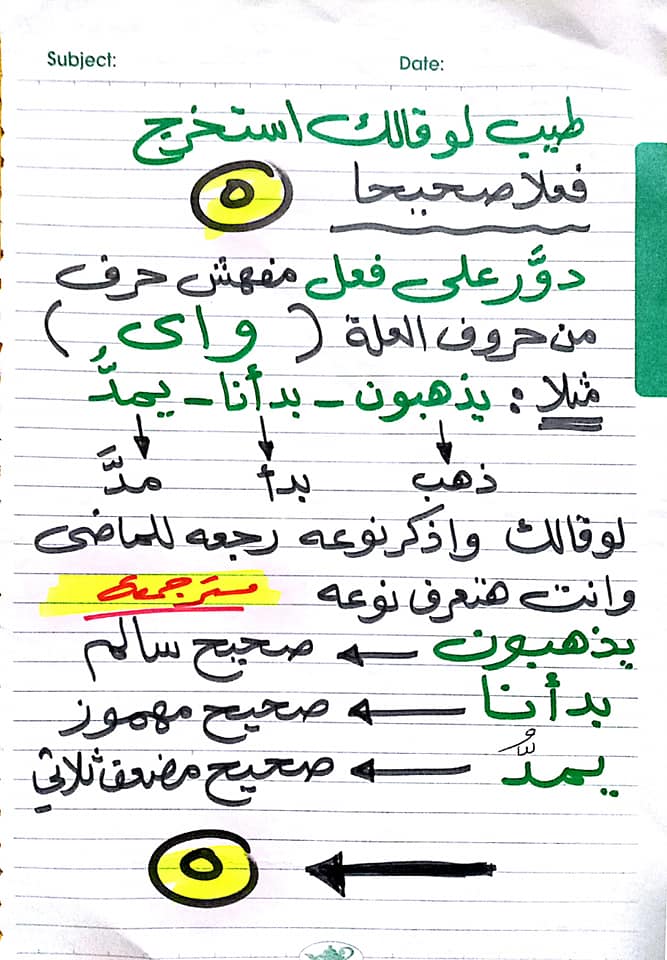 Subject: Date:
طيب لو قالك استخرج
فعلا صحيحا ٥
دوَّر على فعل مفهش حرف
من حروف العلة ( واى )
مثلا : يذهبون - بدأنا - يمدُّ
ذهب بدأ مدَّ
لو قالك واذكر نوعه رجعه للماضى
وانت هتعرف نوعه
يذهبون ← صحيح سالم
بدأنا ← صحيح مهموز
يمدُّ ← صحيح مضعف ثلاثي
← ٥